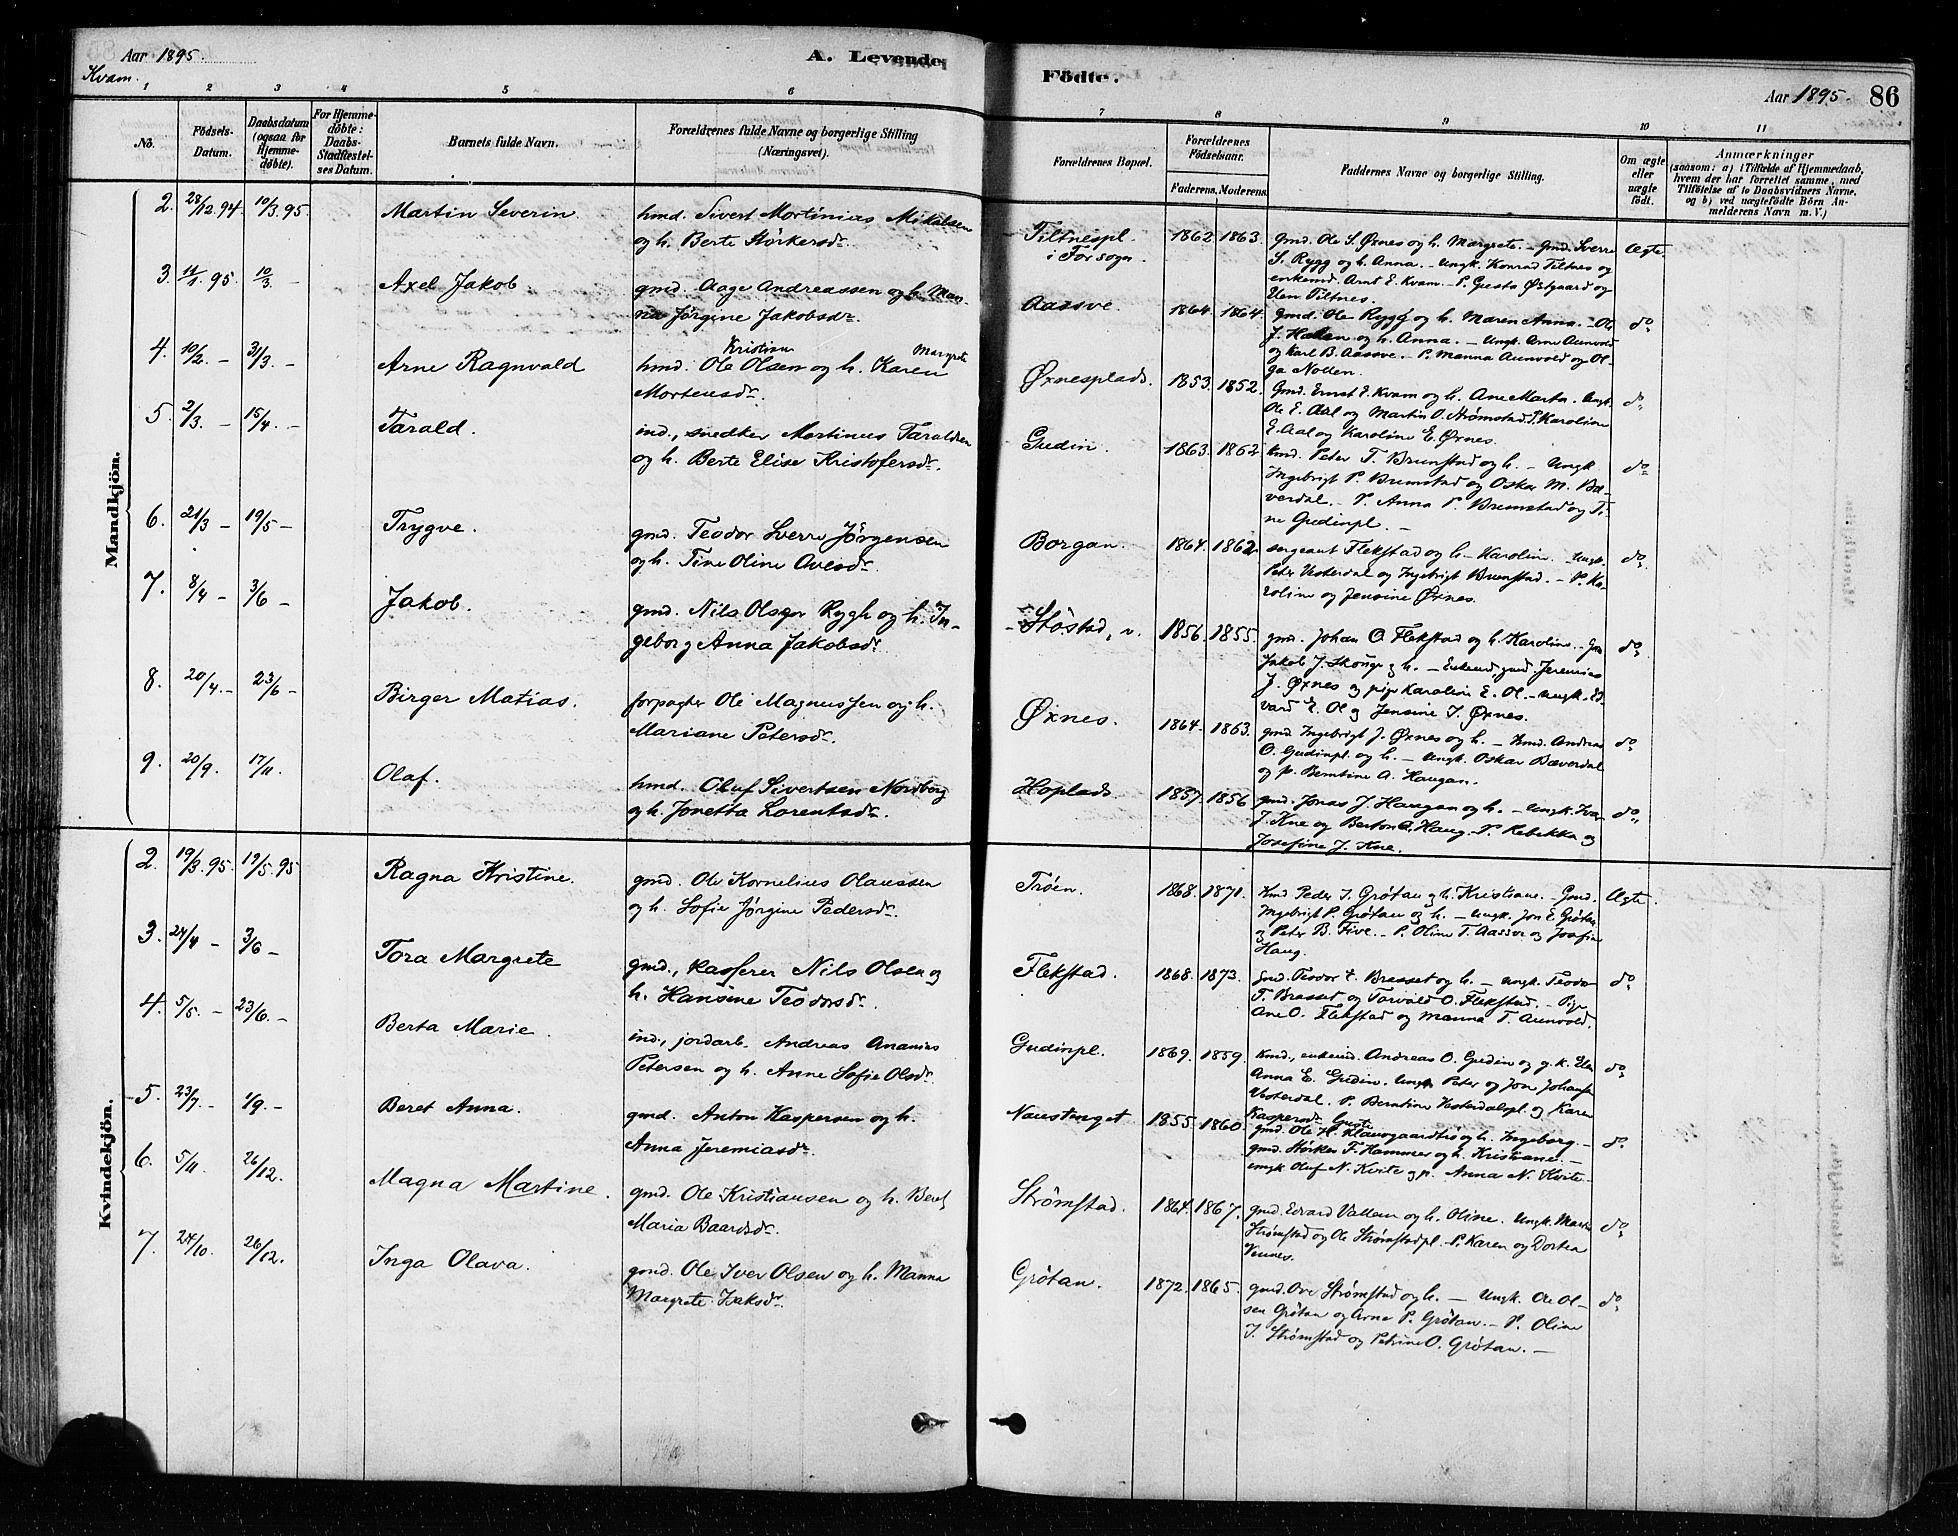 Aar 1895.
Kvam.
A. Levende
Födte.
Aar 1895.
86
1 2 3 4 5 6 7 8 9 10 11
No.
Födsels-Datum.
Daabsdatum (ogsaa for Hjemmedöbte).
For Hjemmedöbte: Daabs-Stadfæstelses Datum.
Barnets fulde Navn.
Forældrenes fulde Navne og borgerlige Stilling (Næringsvei).
Forældrenes Bopæl.
Forældrenes Födselsaar.
Faderens. Moderens.
Faddernes Navne og borgerlige Stilling.
Om ægte eller uægte födt.
Anmærkninger
(saasom: a) i Tilfælde af Hjemmedaab, hvem der har forrettet samme, med Tilföielse af to Daabsvidners Navne, og b) ved uægtefödte Börn Anmelderens Navn m. V.)
Mandkjön.
2. 28/12.94. 10/3.95. Martin Severin hmd. Sivert Mortinias Mikalsen
og h. Berte Størkersdr.
Tiltnespl. i Forsogn. 1862. 1863. Gmd. Ole S. Øxnes og h. Margrete. – Gmd. Sverre
S. Rygg og h. Anna. – Ungk. Konrad Tiltnes og
enkemd. Arnt E. Kvam. – P. Gusta Østgaard og
Elen Tiltnes.
Ægte.
3. 11/1.95. 10/3 – Axel Jakob gmd. Aage Andreassen og h. Man-
na Jørgine Jakobsdr.
Aassve. 1864. 1864. gmd. Ole Rygg og h. Maren Anna. – Ole
J. Hallan og h. Anna. – Ungk. Arne Aunvold
og Karl B. Aassve. – P. Manna Aunvold og Ol-
ga Nollen.
do
4. 10/2. – 31/3. – Arne Ragnvald hmd. Ole Kristian Olsen og h. Karen Margrete
Mortensdr.
Øxnesplads. 1853. 1852. Gmd. Ernst E. Kvam og h. Ane Marta. Ungk.
Ole E. Aal og Martin O. Strømstad. P. Karoline
E. Aal og Karoline E. Øxnes.
do
5. 2/3. – 15/4. – Tarald. ind., snedker Martinus Taraldsen
og h. Berte Elise Kristofersdr.
Gudin. 1863. 1862. Kmd. Peter T. Brunstad og h. – Ungk.
Ingebrigt P. Brunstad og Oskar M. Bæ-
verdal. – P. Anna P. Brunstad og Ti-
ne Gudinpl. –
do
6. 21/3 – 19/5 – Trygve. gmd. Teodor Sverre Jørgensen
og h. Tine Oline Ovesdr.
Borgan. 1864. 1862. sergeant Flekstad og h. Karoline. Ungk.
Peter Vesterdal og Ingebrigt Brunstad. – P. Ka-
roline og Jensine Øxnes.
do
7. 8/4 – 3/6 – Jakob. gmd. Nils Olsen Rygh og h. In-
geborg Anna Jakobsdr.
Støstad, v. 1856. 1855. gmd. Johan O. Flekstad og h. Karoline. –
Jakob J. Skonge og h. – Enkemd. gmd Jeremias
J. Øxnes og pige Karoline E. Ol – Ungk. Ed-
vard E. Ol og Jensine J. Øxnes.
do
8. 20/4. – 23/6 – Birger Matias. forpagter Ole Magnussen og h.
Mariane Petersdr.
Øxnes. 1864. 1863. gmd. Ingebrigt J. Øxnes og h. – Kmd. Andreas
O. Gudinpl. og h. – Ungk. Oskar Bæverdal
og p. Berntine A. Haugan.
do
9. 20/9. 17/11. Olaf. hmd. Oluf Sivertsen Nordborg
og h. Jonetta Lorentsdr.
Hoplads. 1857. 1856 gmd. Jonas J. Haugan og h. – Ungk. Ivar
J. Kne og Berton O. Haug. P. Rebekka og
Josefine J. Kne.
do
Kvindekjön.
2. 19/3.95. 19/5.95 Ragna Kristine. gmd. Ole Kornelius Olaussen
og h. Sofie Jørgine Pedersdr.
Trøen. 1868. 1871. Kmd Peder I. Grøtan og h. Kristiane. – Gmd.
Ingebrigt P. Grøtan og h. – Ungk. Jon E. Grøtan
og Peter B. Five. – P. Oline T. Aassve og Josefine
Haug.
Ægte.
3. 24/4 – 3/6 – Tora Margrete gmd., kasserer Nils Olsen og
h. Hansine Teodorsdr.
Flekstad. 1868. 1873. gmd. Teodor t. Brasset og h. – Ungk. Teodor
T. Brasset og Torvald O. Flekstad. – Pige
Ane O. Flekstad og Manna T. Aunvold.
do
4. 5/5. – 23/6. – Berta Marie. ind., jordarb. Andreas Ananias
Petersen og h. Anne Sofie Olsdr.
Gudinpl. 1869. 1859. Kmd., enkemd. Andreas O. Gudin og g.k. Elen
Anna E. Gudin. Ungk Peter og Jon Johansen
Vesterdal. P. Berntine Vesterdalspl. og Karen
Kaspersdr.
do
5. 23/7. – 1/9. – Beret Anna. gmd. Anton Kaspersen og h.
Anna Jeremiasdr.
Naustenget 1855. 1860. gmd. Ole H. Klavsgaard og h. Ingeborg –
gmd. Størker F. Hammer og h. Kristiane. –
ungk Oluf N. Kvite og p. Anna N. Kvite
do
6. 5/11. 26/12. Magna Martine. gmd. Ole Kristiansen og h. Beret
Maria Baardsdr.
Strømstad. 1864. 1867. gmd. Edvard Vallem og h. Oline. Ungk. Martin
Strømstad og Ole Strømstadpl. P. Karen og Dortea
Vennes.
do
7. 24/10. 26/12. Inga Olava. gmd. Ole Iver Olsen og h. Manna
Margrete Isaksdr.
Grøtan. 1872. 1865. gmd. Ove Strømstad og h. – Ungk. Ole Ol-
sen Grøtan og Arne P. Grøtan. – P. Oline
J. Strømstad og Petrine O. Grøtan. –
do